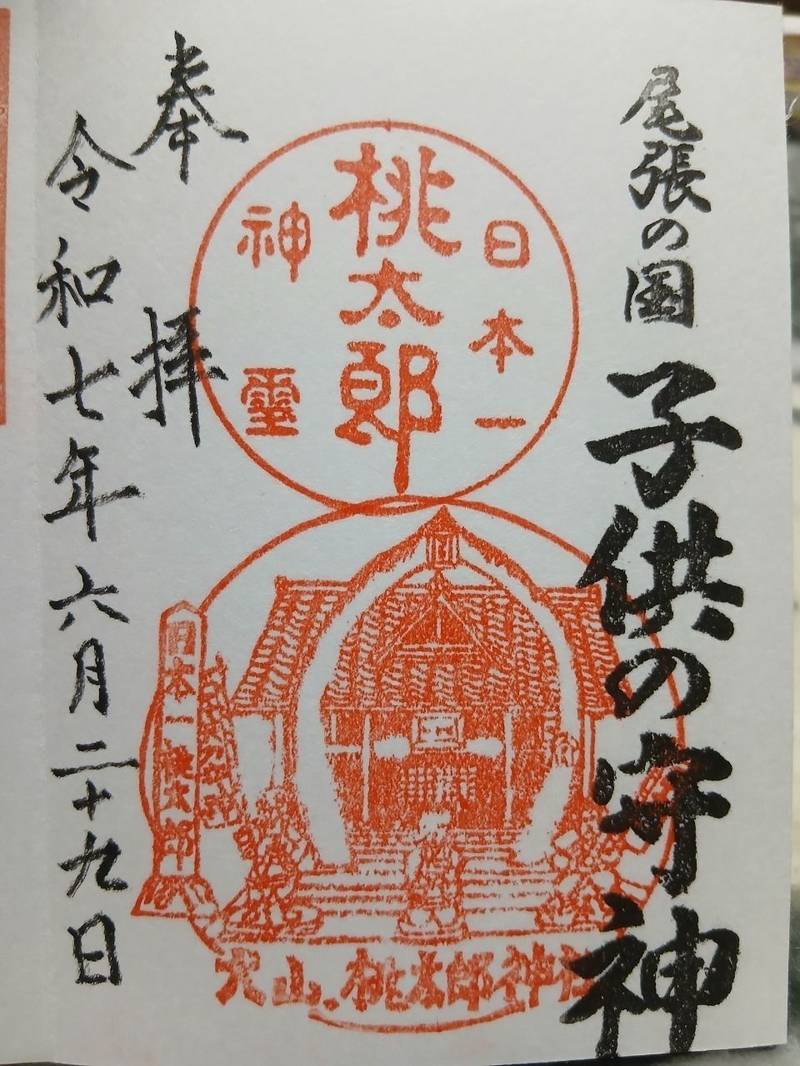 尾張の国 子供の守神
日本一
桃太郎
神霊
日本一桃太郎
犬山、桃太郎神社
奉拝
令和七年六月二十九日